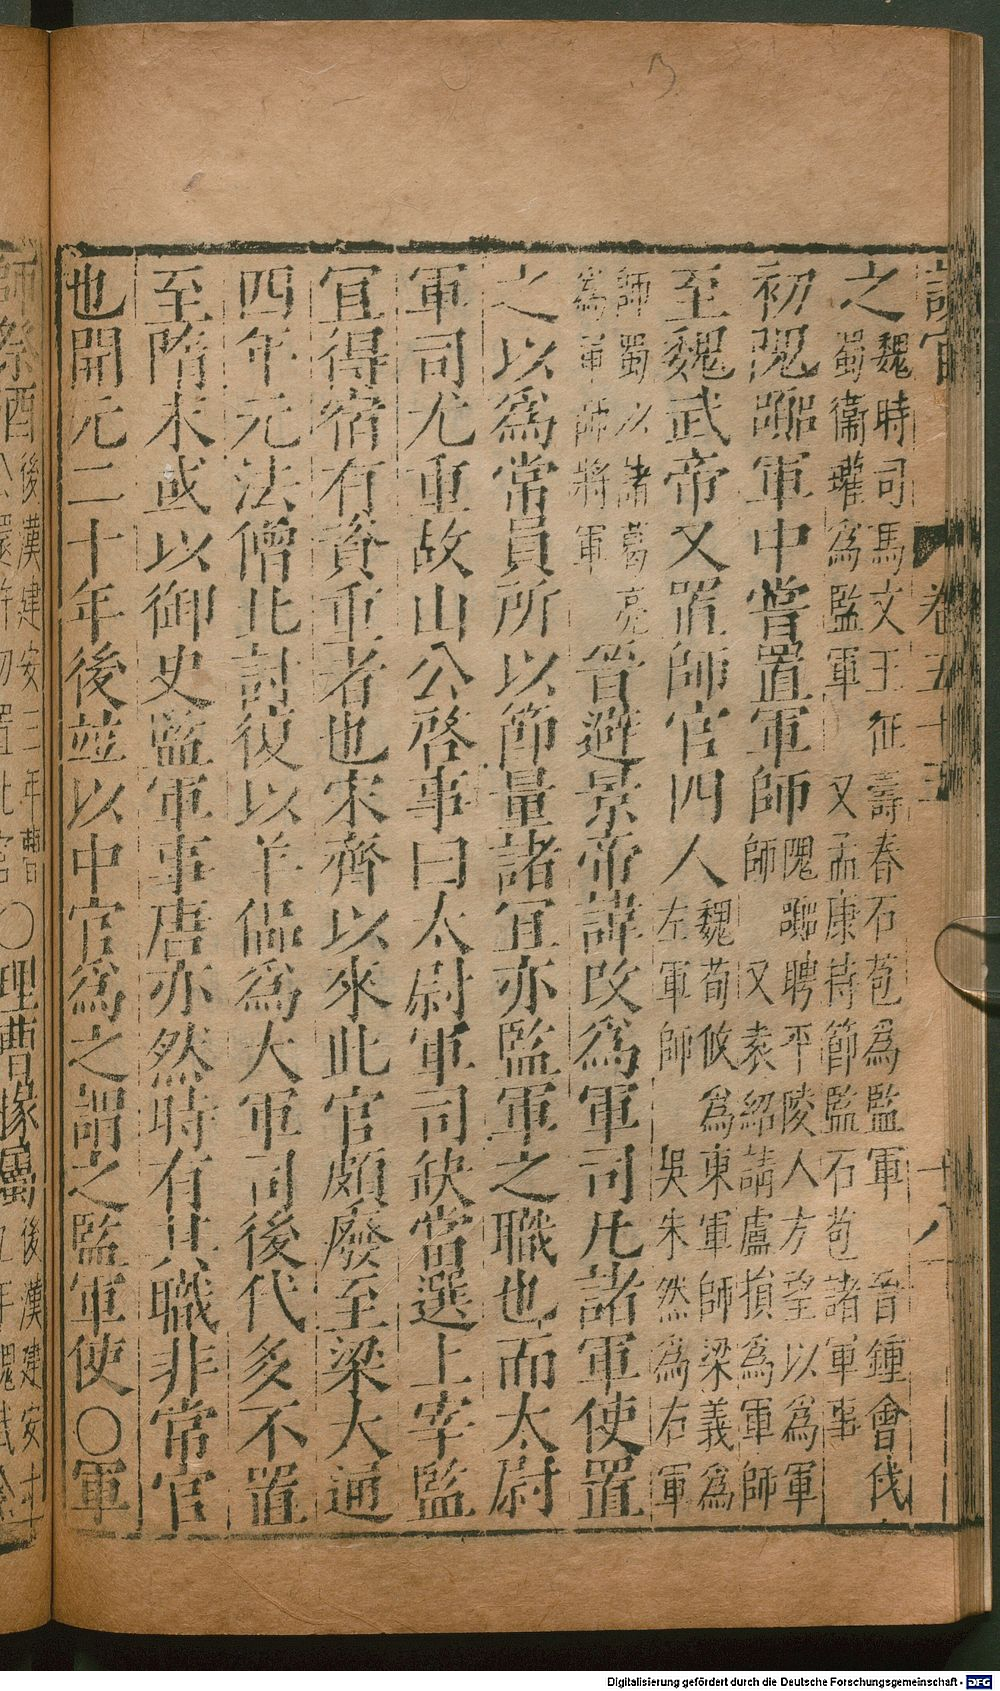 之 魏時司馬文王征壽春石苞爲監軍 晉鍾會伐
蜀衛瓘爲監軍 又孟康持節監石苞諸軍事
初隗囂軍中嘗置軍師 隗囂聘平陵人方望以爲軍
師 又袁紹請盧損爲軍師
至魏武帝又置師官四人 魏荀攸爲東軍師梁義爲
左軍師 吳朱然爲右軍
師蜀以諸葛亮
爲軍師將軍 晉避景帝諱改爲軍司凡諸軍使置
之以爲常員所以節量諸宜亦監軍之職也而太尉
軍司尤重故山公啓事曰太尉軍司缺當選上宰監
宜得宿有資重者也宋齊以來此官頗廢至梁大通
四年元法僧北討復以羊侃爲大軍司後代多不置
至隋末或以御史監軍事唐亦然時有其職非常官
也開元二十年後並以中官爲之謂之監軍使〇軍
卷五十五
十八
師祭酒 後漢建安三年曹
公還許初置此官 〇理曹掾屬 後漢建安十
Digitalisierung gefördert durch die Deutsche Forschungsgemeinschaft - DFG